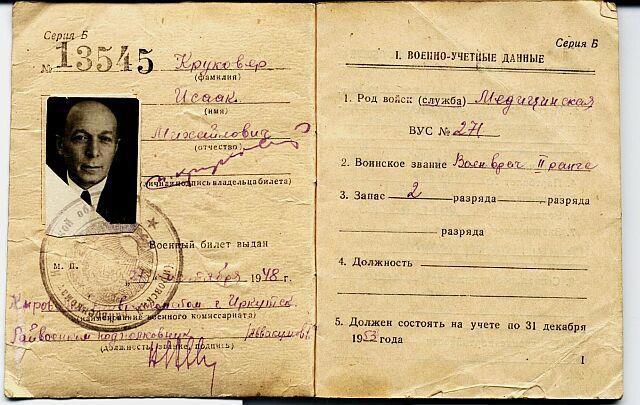 Серия Б
№ 13545 Круковер
(фамилия)
Исаак
(имя)
Михайлович
(отчество)
(личная подпись владельца билета)
Военный билет выдан
М. П. 1948 г.
г. Иркутск
(наименование военного комиссариата)
Райвоенком подполковник
(должность, звание, подпись)
Серия Б
I. ВОЕННО-УЧЕТНЫЕ ДАННЫЕ
1. Род войск (служба) Медицинская
ВУС № 271
2. Воинское звание Военврач II ранга
3. Запас 2 разряда разряда
разряда
4. Должность
5. Должен состоять на учете по 31 декабря
1953 года
I